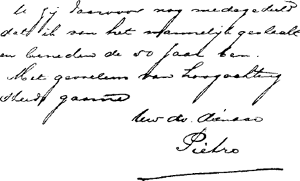 U zij daarvoor nog medegedeeld
dat ik van het mannelijk geslacht
en beneden de 50 jaar ben.
Met gevoelens van hoogachting
steeds gaarne
Uw dv. dienaar
Pietro